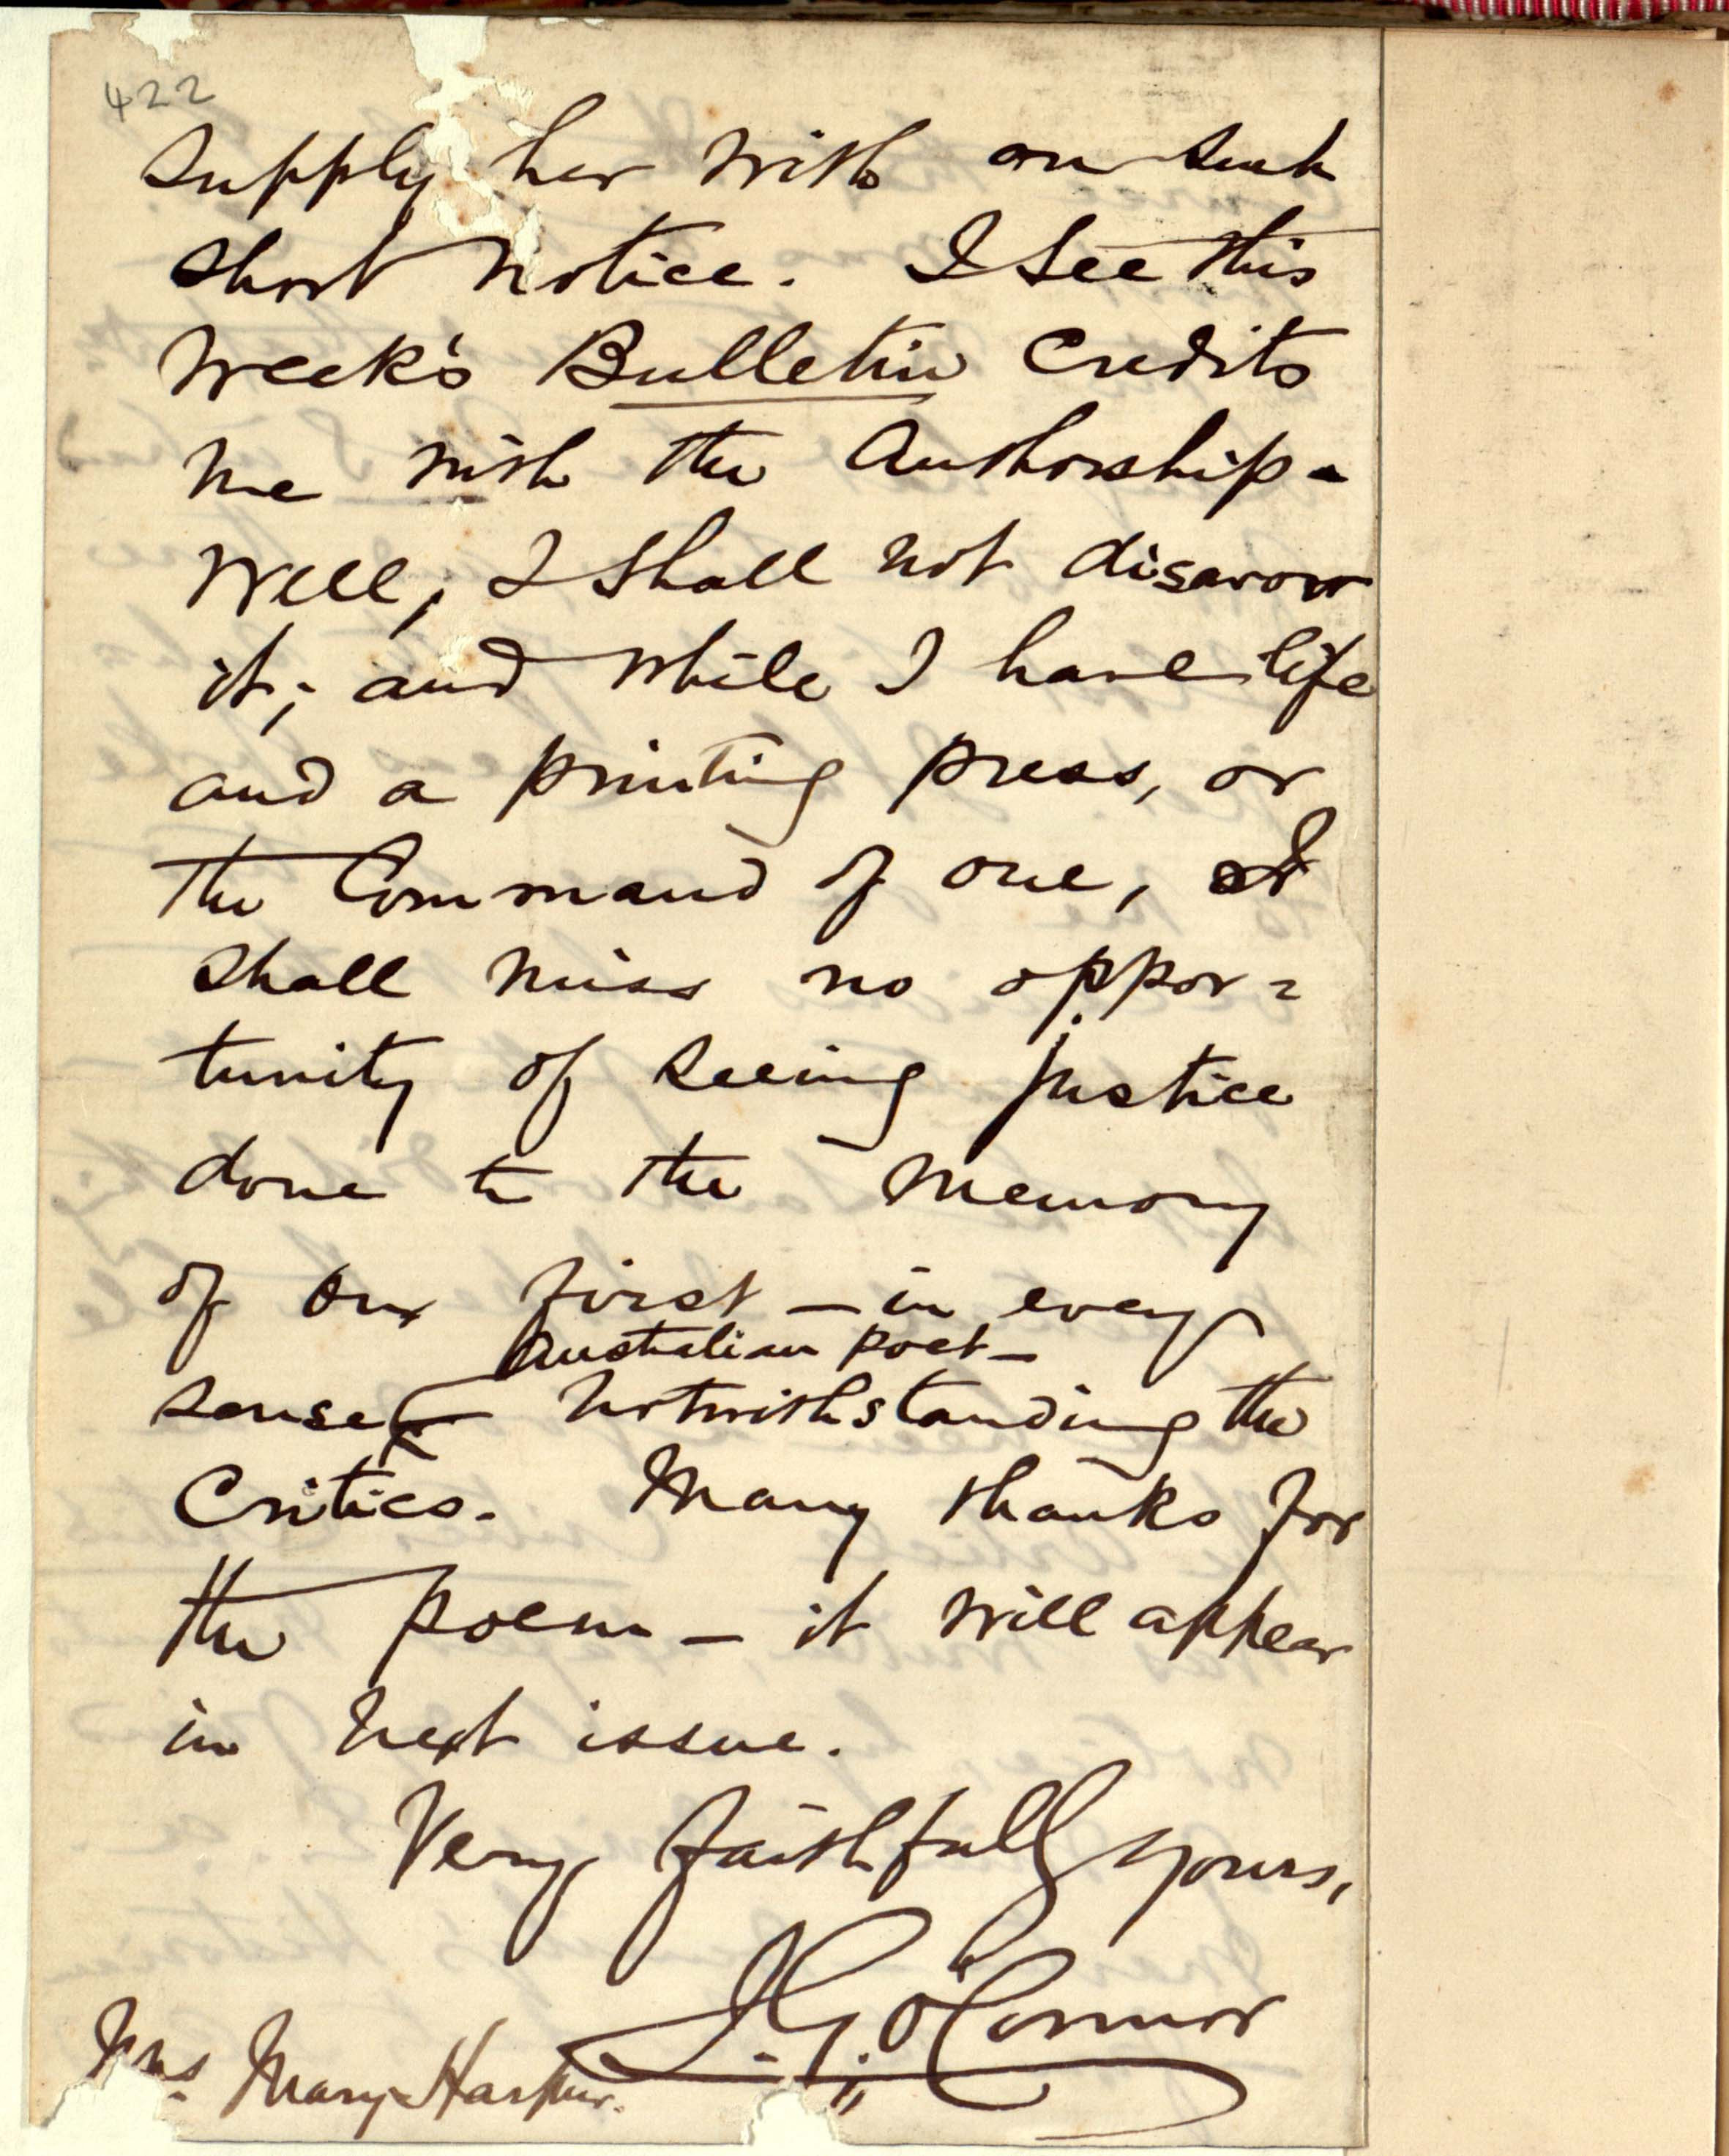 422
supply her with on such
short notice. I see this
week's Bulletin credits
me with the Authorship -
Well, I shall not disavow
it; and while I have life
and a printing press, or
the Command of one, I
shall miss no oppor=
tunity of seeing justice
done to the Memory
of our first — in every
Australian poet —
sense — notwithstanding the
Critics. Many thanks for
the poem — it will appear
in next issue.
Very faithfully yours,
J. G. O'Connor
Mrs Mary Harpur.